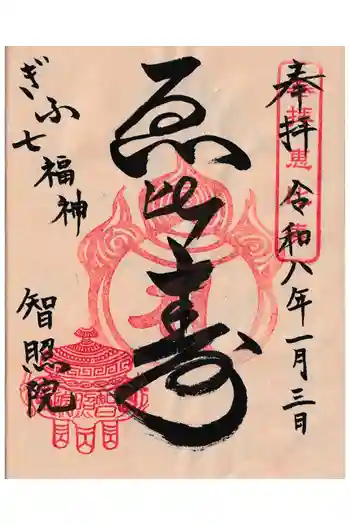 奉拝 令和八年一月三日
恵比寿
ぎふ七福神
智照院